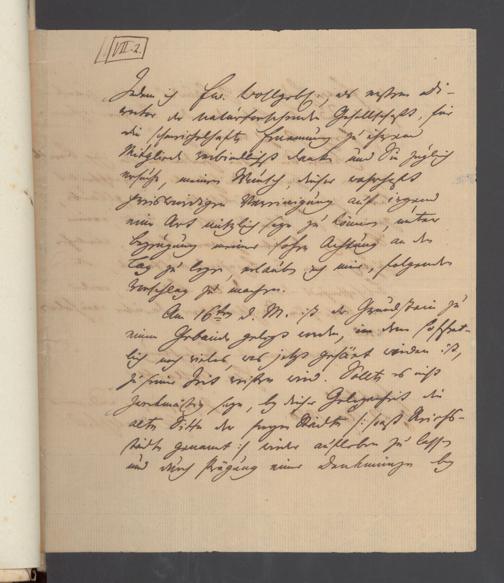 VII. 2.
Indem ich Ew. Wohlgeb., als erstem Di-
rektor der naturforschenden Gesellschaft, für
die schmeichelhafte Ernennung zu ihrem
Mitgliede verbindlichst danke und Sie zugleich
ersuche, meinen Wunsch, dieser wahrhaft
preiswürdigen Vereinigung auf irgend
eine Art nützlich seyn zu können, unter
Bezeigung meiner hohen Achtung an den
Tag zu legen, erlaube ich mir, folgenden
Vorschlag zu machen.
Am 16ten d. M. ist der Grundstein zu
einem Gebäude gelegt worden, in dem hoffent-
lich noch vieles, was jetzt gesäet worden ist,
zu seiner Zeit reifen wird. Sollte es nicht
zweckmäßig seyn, bey dieser Gelegenheit die
alte Sitte der freyen Städte (: sonst Reichs-
städte genannt :) wieder aufleben zu lassen
und durch Prägung einer Denkmünze bey